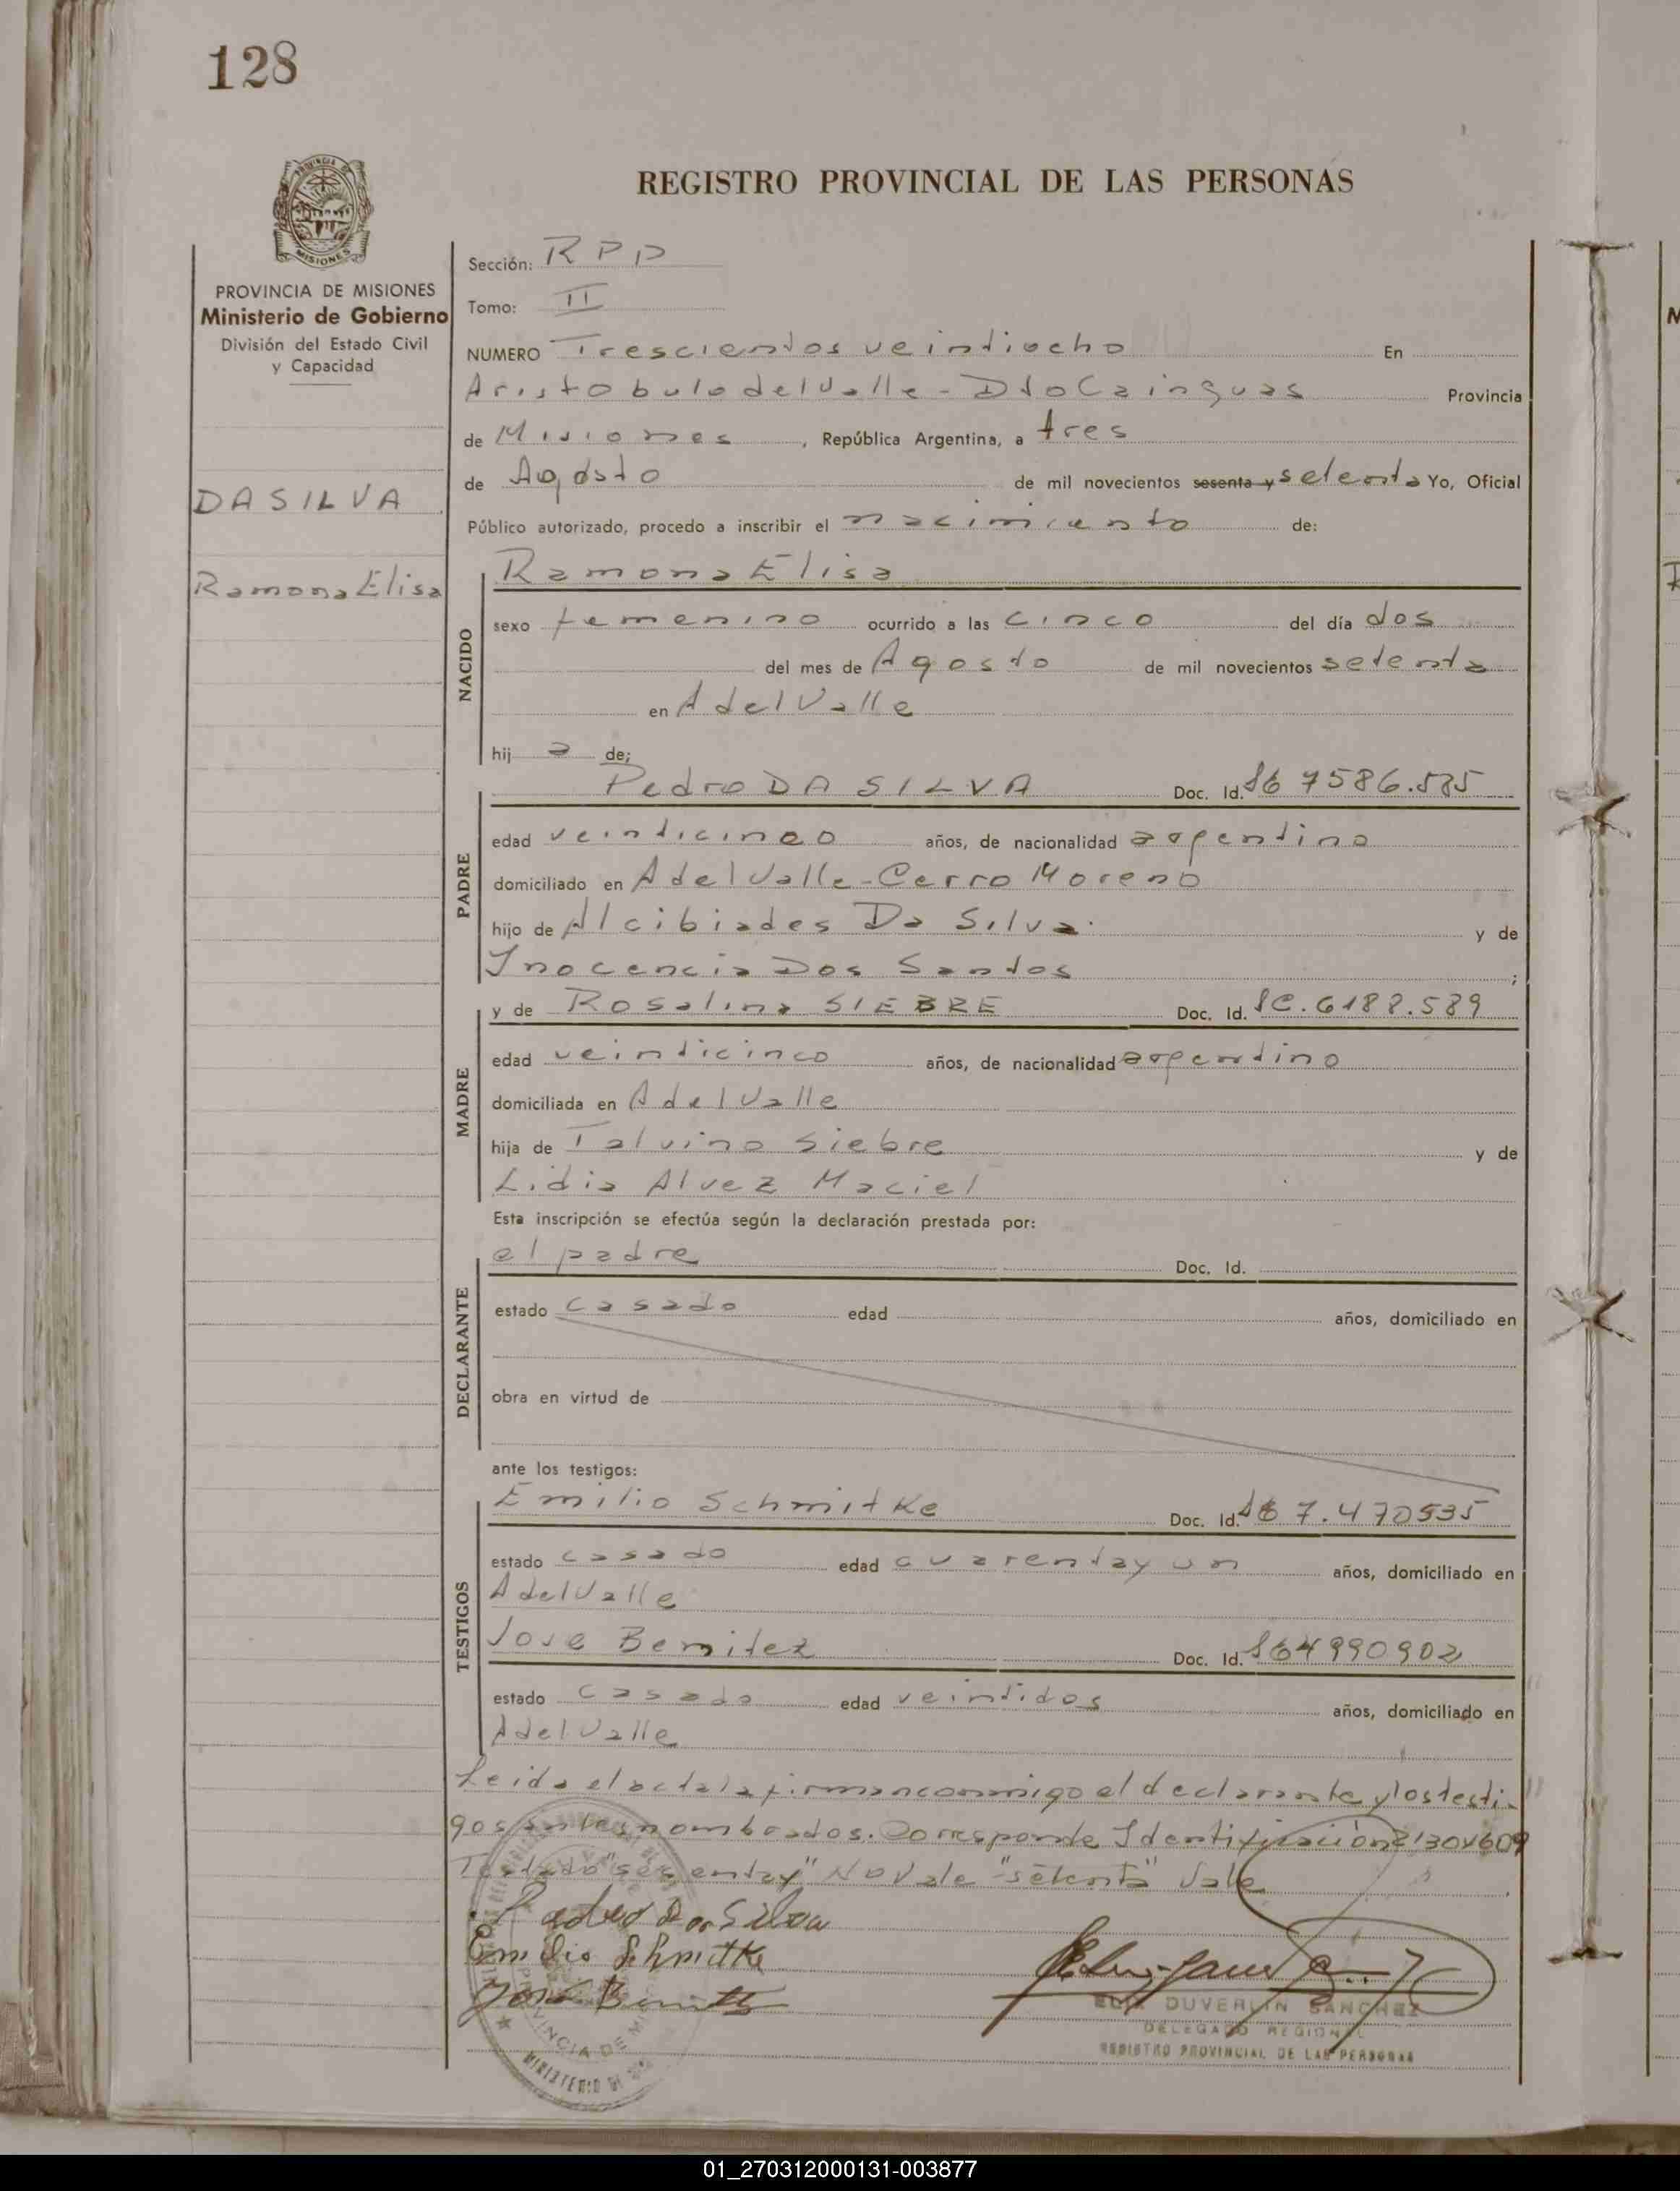 128
REGISTRO PROVINCIAL DE LAS PERSONAS
PROVINCIA DE MISIONES
Ministerio de Gobierno
División del Estado Civil
y Capacidad
DA SILVA
Ramona Elisa
Sección: RPP
Tomo: II
NUMERO Trescientos veintiocho En
Aristobulo del Valle - Dto Cainguas Provincia
de Misiones, República Argentina, a tres
de Agosto de mil novecientos sesenta y setenta Yo, Oficial
Público autorizado, procedo a inscribir el nacimiento de:
NACIDO
Ramona Elisa
sexo femenino ocurrido a las cinco del día dos
del mes de Agosto de mil novecientos setenta
en A del Valle
hij a de;
PADRE
Pedro DA SILVA Doc. Id. 7586.585
edad veinticinco años, de nacionalidad argentino
domiciliado en A del Valle - Cerro Moreno
hijo de Alcibiades Da Silva y de
Inocencia Dos Santos;
MADRE
y de Rosalina SIEBRE Doc. Id. 6188.589
edad veinticinco años, de nacionalidad argentino
domiciliada en A del Valle
hija de Talvino Siebre y de
Lidia Alvez Maciel
Esta inscripción se efectúa según la declaración prestada por:
DECLARANTE
el padre Doc. Id.
estado casado edad años, domiciliado en
obra en virtud de
ante los testigos:
TESTIGOS
Emilio Schmitke Doc. Id. 7.470535
estado casado edad cuarenta y un años, domiciliado en
A del Valle
Jose Benitez Doc. Id.
estado casado edad veintidos años, domiciliado en
A del Valle
Leida el acta la firman conmigo el declarante y los testi-
gos antes nombrados. Corresponde Identificación
Testado "sesenta y" NO Vale "setenta" Vale
Pedro Da Silva
Emilio Schmitke
José Benitez
DUVERLIN SANCHEZ
DELEGADO REGIONAL
REGISTRO PROVINCIAL DE LAS PERSONAS
01_270312000131-003877